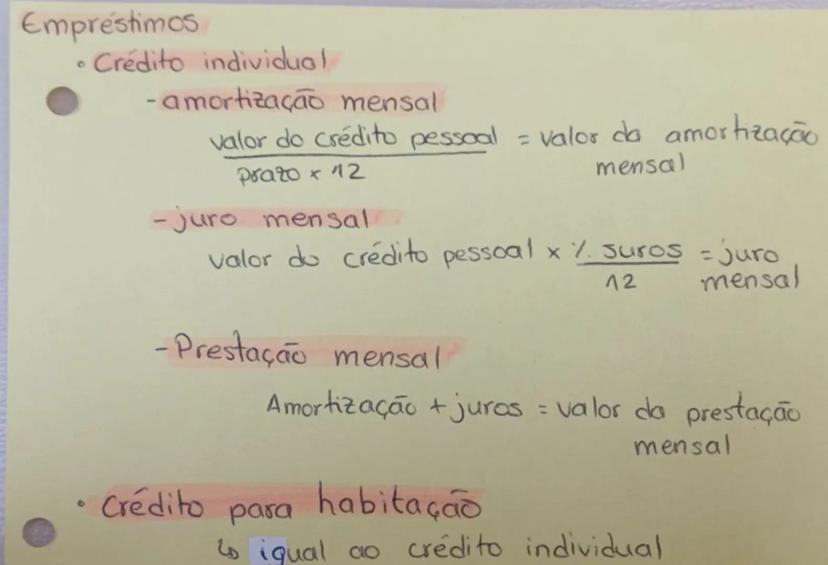 Empréstimos
• Crédito individual
- amortização mensal
valor do crédito pessoal = valor da amortização
prazo × 12 mensal
- juro mensal
valor do crédito pessoal × % juros = juro
12 mensal
- Prestação mensal
Amortização + juros = valor da prestação
mensal
• Crédito para habitação
↳ igual ao crédito individual